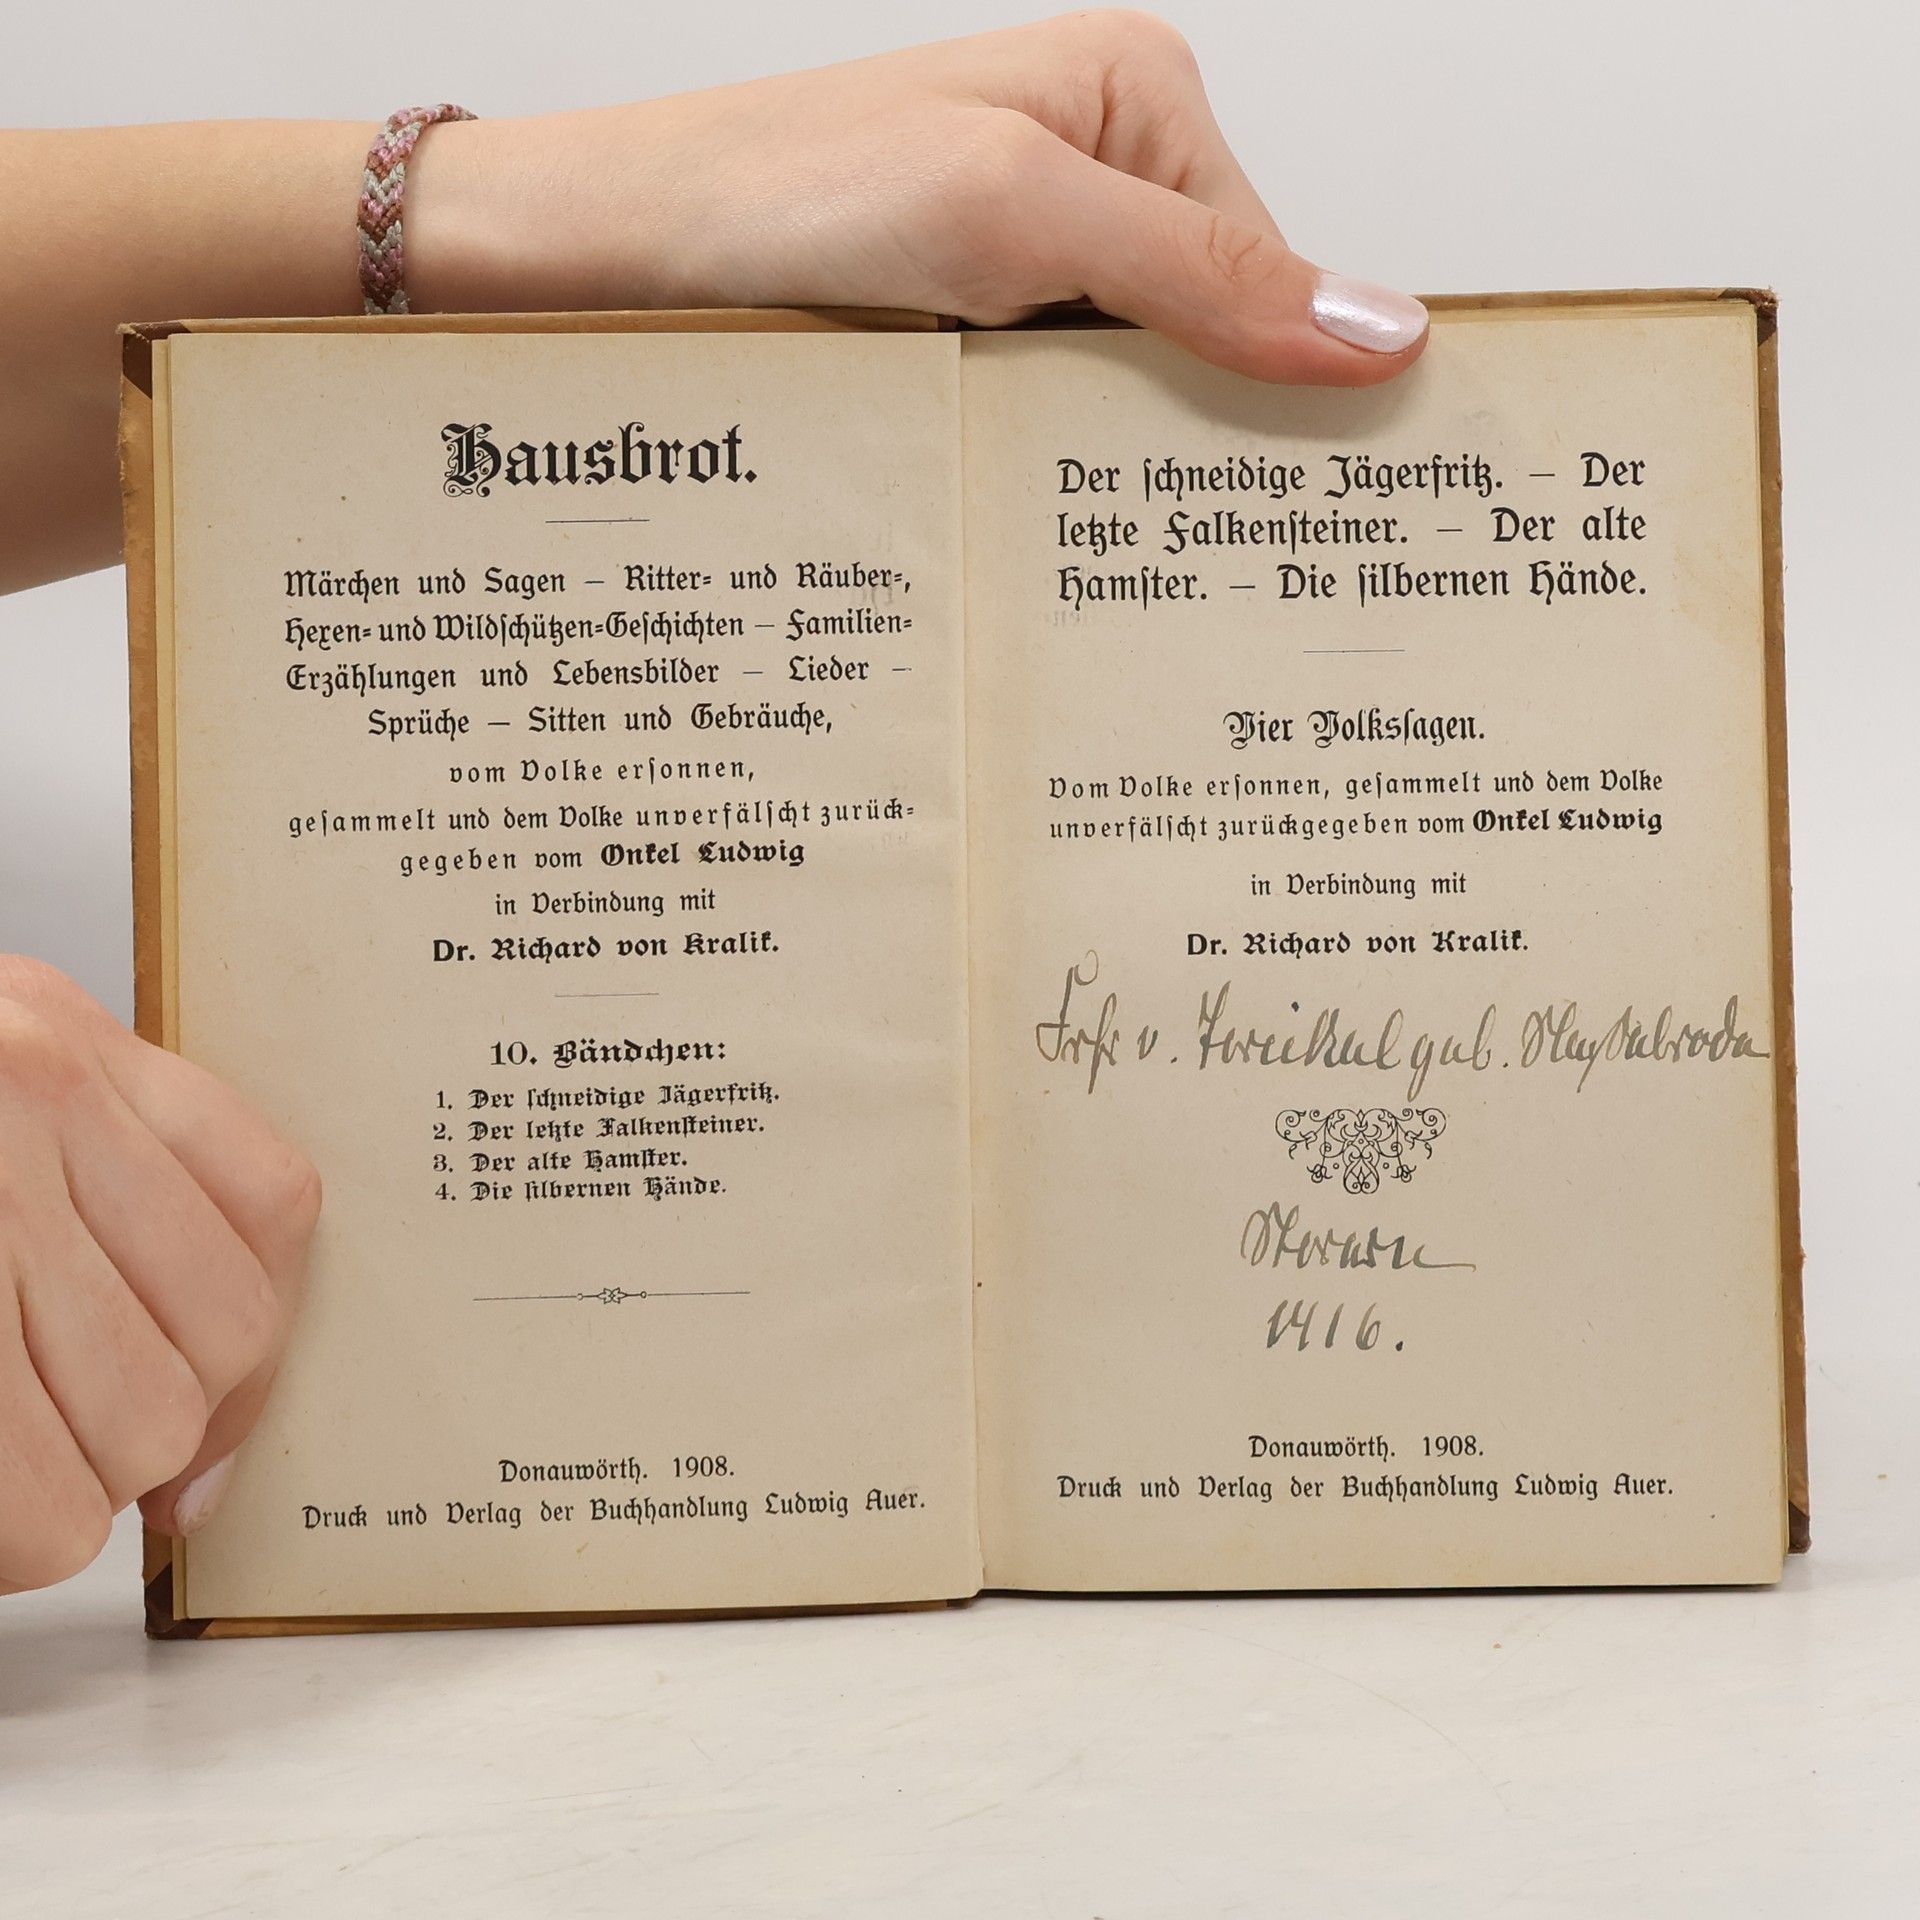 Hausbrot.
Märchen und Sagen — Ritter= und Räuber=,
Hexen= und Wildschützen=Geschichten — Familien=
Erzählungen und Lebensbilder — Lieder —
Sprüche — Sitten und Gebräuche,
vom Volke ersonnen,
gesammelt und dem Volke unverfälscht zurück=
gegeben vom Onkel Ludwig
in Verbindung mit
Dr. Richard von Kralik.
10. Bändchen:
1. Der schneidige Jägerfritz.
2. Der letzte Falkensteiner.
3. Der alte Hamster.
4. Die silbernen Hände.
Donauwörth. 1908.
Druck und Verlag der Buchhandlung Ludwig Auer.
Der schneidige Jägerfritz. — Der
letzte Falkensteiner. — Der alte
Hamster. — Die silbernen Hände.
Vier Volkssagen.
Vom Volke ersonnen, gesammelt und dem Volke
unverfälscht zurückgegeben vom Onkel Ludwig
in Verbindung mit
Dr. Richard von Kralik.
v. geb.
Donauwörth. 1908.
Druck und Verlag der Buchhandlung Ludwig Auer.